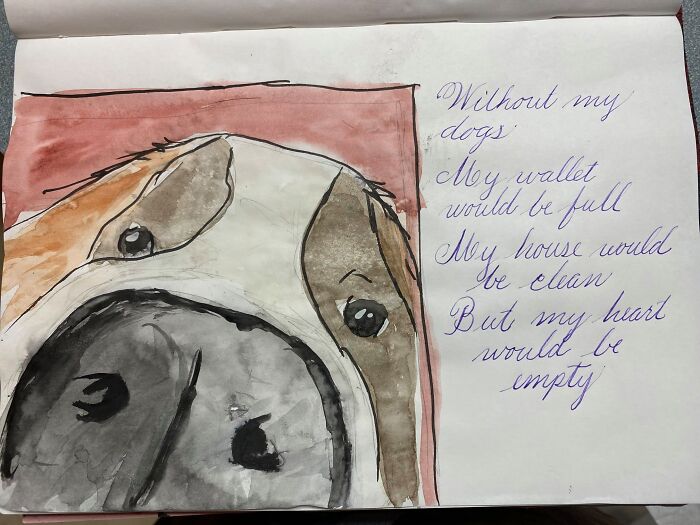 Without my
dogs
My wallet
would be full
My house would
be clean
But my heart
would be
empty